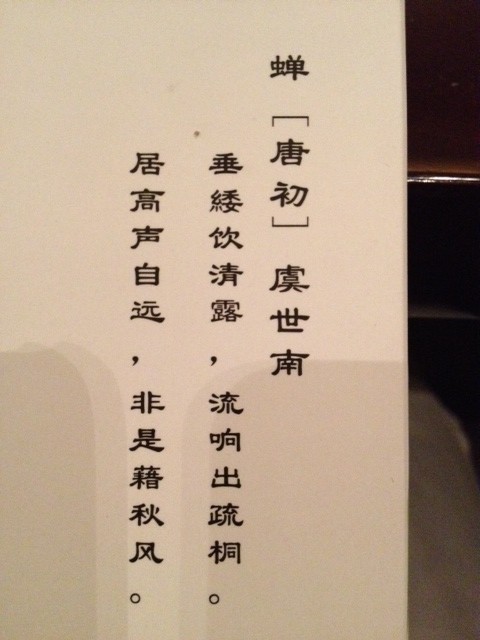 蝉［唐初］虞世南
垂緌饮清露，流响出疏桐。
居高声自远，非是藉秋风。